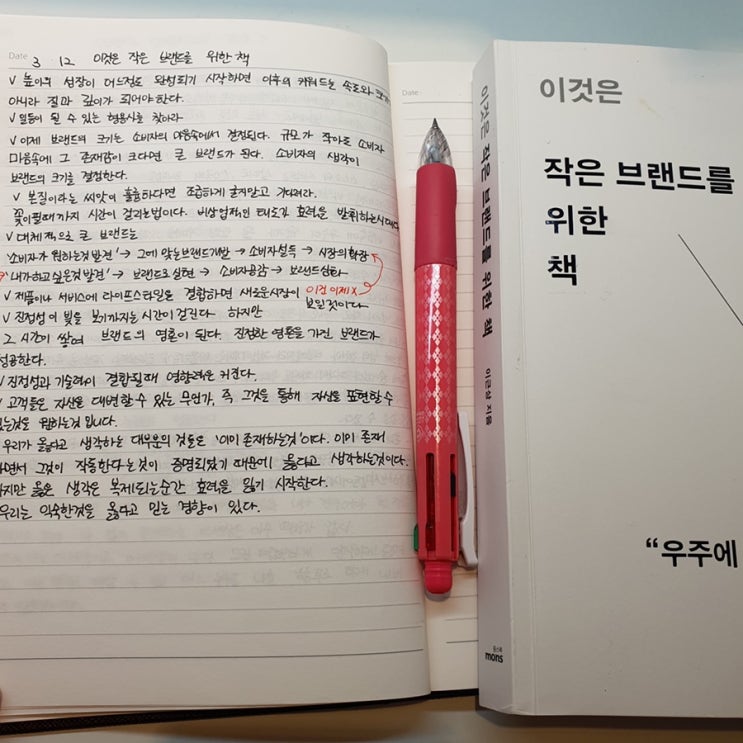 Date 3 12 이것은 작은 브랜드를 위한 책
V 높이의 성장이 어느정도 완성되기 시작하면 이후의 키워드는 속도와 크기가
아니라 질과 깊이가 되어야한다.
V 일등이 될 수 있는 형용사를 찾아라
V 이제 브랜드의 크기는 소비자의 마음속에서 결정된다. 규모가 작아도 소비자
마음속에 그 존재감이 크다면 큰 브랜드가 된다. 소비자의 생각이
브랜드의 크기를 결정한다.
V 본질이라는 씨앗이 훌륭하다면 조급하게 굴지말고 기다려라.
꽃이필때까지 시간이 걸리는법이다. 비상업적인 태도가 효력을 발휘하는시대다
V 대체적으로 큰 브랜드는
소비자가 원하는것 발견' → 그에 맞는브랜드개발 → 소비자설득 → 시장의확장
'내가하고싶은것 발견' → 브랜드로 실현 → 소비자공감 → 브랜드심화
이건 이제 X
V 제품이나 서비스에 라이프스타일을 결합하면 새로운시장이 보일것이다
V 진정성이 빛을 보기까지는 시간이 걸린다. 하지만
그 시간이 쌓여 브랜드의 영혼이 된다. 진정한 영혼을 가진 브랜드가
성공한다.
V 진정성과 기술력이 결합될때 영향력은 커진다.
V 고객들은 자신을 대변할 수 있는 무언가, 즉 그것을 통해 자신을 표현할 수
있는것은 원하는것 입니다.
우리가 옳다고 생각하는 대부분의 것들은 '이미 존재하는것'이다. 이미 존재
하면서 그것이 작동한다는것이 증명되었기 때문에 옳다고 생각하는것이다.
하지만 옳은 생각은 복제되는순간 효력을 잃기 시작한다.
우리는 익숙한것을 옳다고 믿는 경향이 있다.
Date
이것은 작은 브랜드를 위한 책 이근상 지음
몽스북
mons
이것은
작은 브랜드를
위한
책
“우주에